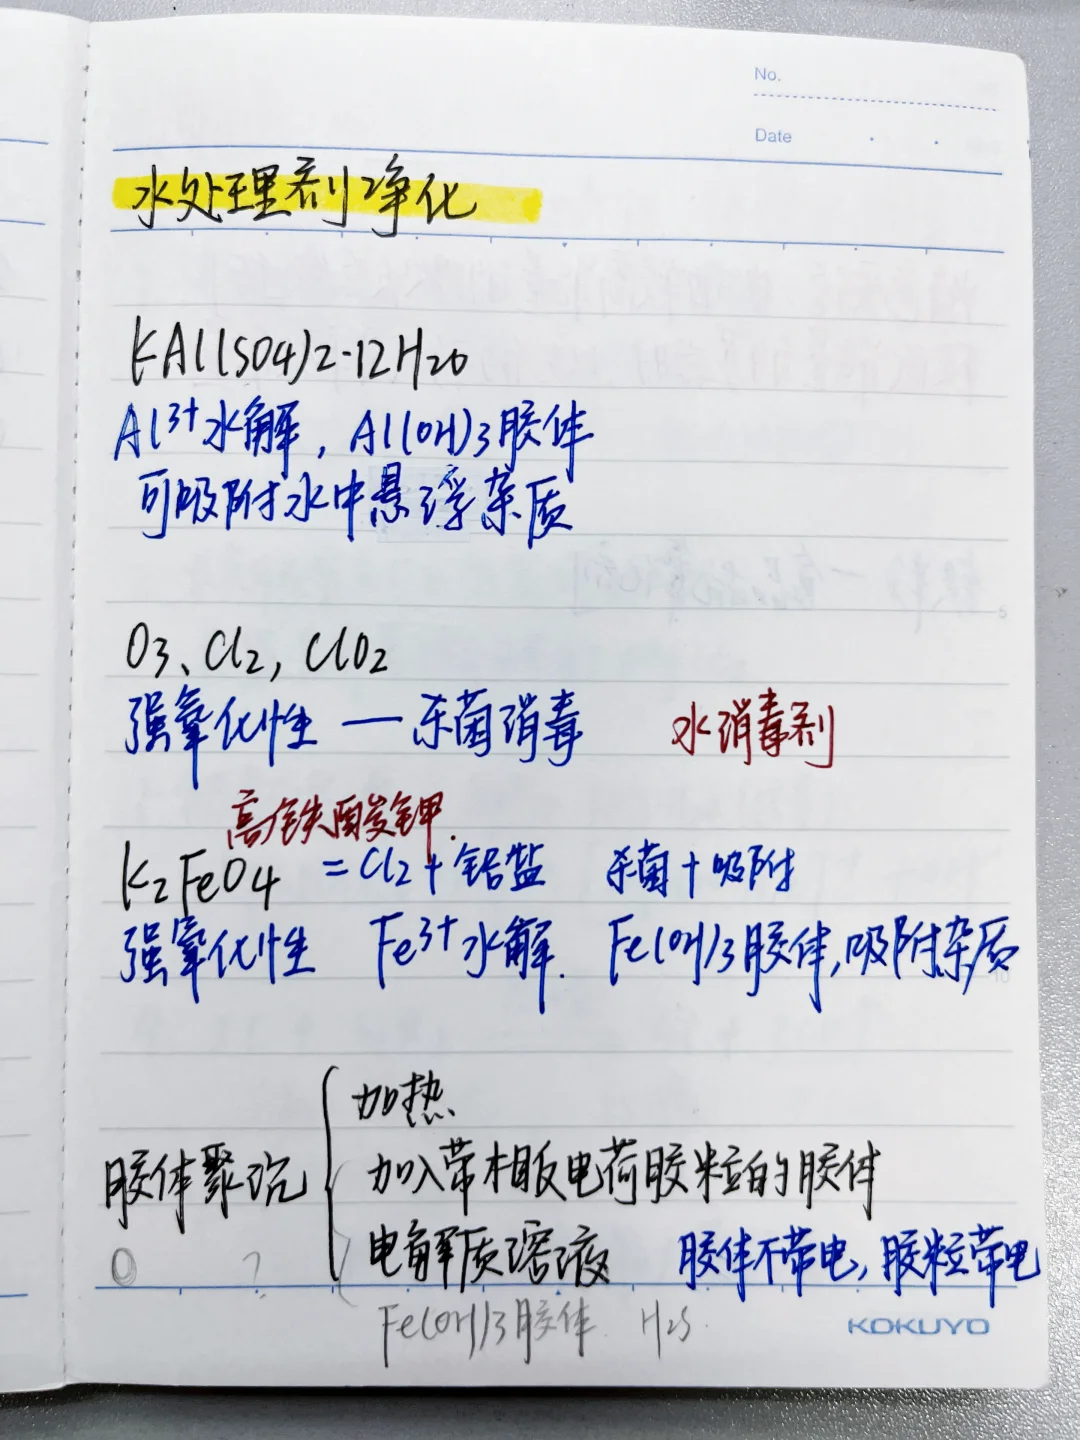 No.
Date
水处理剂净化
KAl(SO4)2·12H2O
Al³⁺水解，Al(OH)3胶体
可吸附水中悬浮杂质
O3、Cl2，ClO2
强氧化性 — 杀菌消毒 水消毒剂
高铁酸钾.
K2FeO4 = Cl2 + 铝盐 杀菌 + 吸附
强氧化性 Fe³⁺水解. Fe(OH)3胶体，吸附杂质
加热
加入带相反电荷胶粒的胶体
胶体聚沉
电解质溶液 胶体不带电，胶粒带电
Fe(OH)3胶体 H2S.
KOKUYO